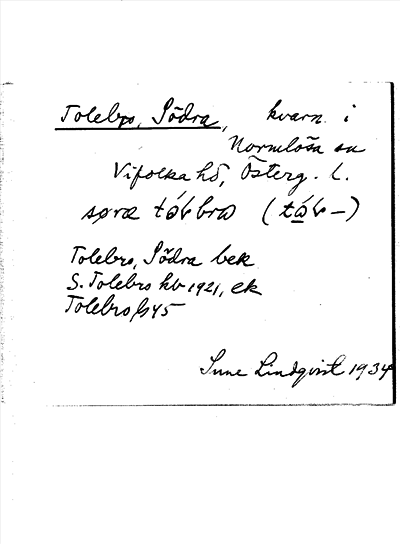 Tolebro, Södra, kvarn i
Normlösa sn
Vifolka hd, Österg. l.
Tolebro, Södra bek
S. Tolebro hv 1921, ek
Tolebro
Sune Lindqvist 1934